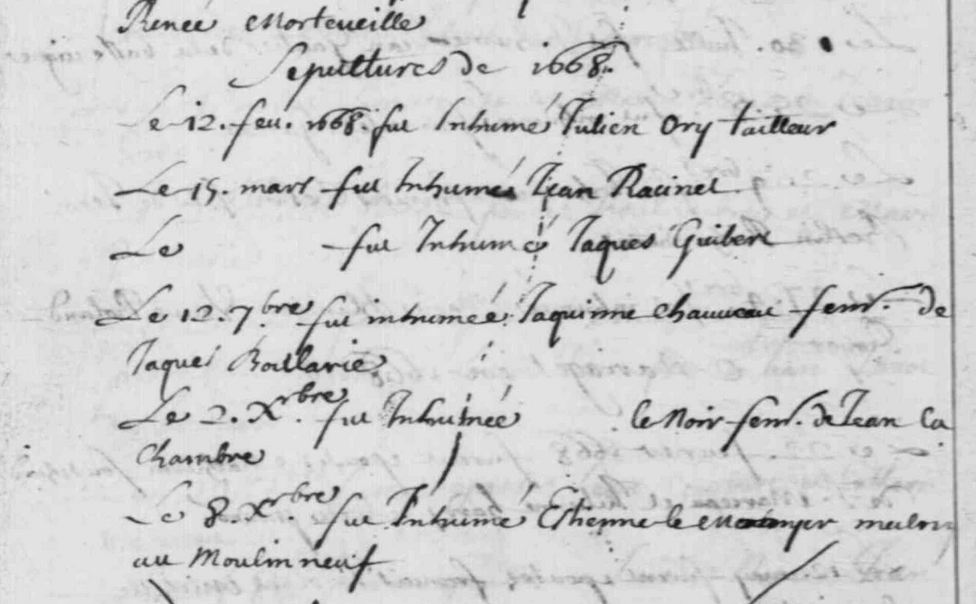 Renée Morteveille
Sepultures de 1668.
Le 12. feu. 1668. fut Inhumé Julien Ory tailleur
Le 15. mars fut Inhumé Jean Racinet
Le fut Inhumé Jaques Guibert
Le 12. 7.bre fut inhumée Jaquinne chauveau fem. de
Jaques
Le 2. X.bre fut Inhumée le Noir fem. de Jean la
Chambre
Le 8. X.bre fut Inhumé Estienne le
au Moulin neuf